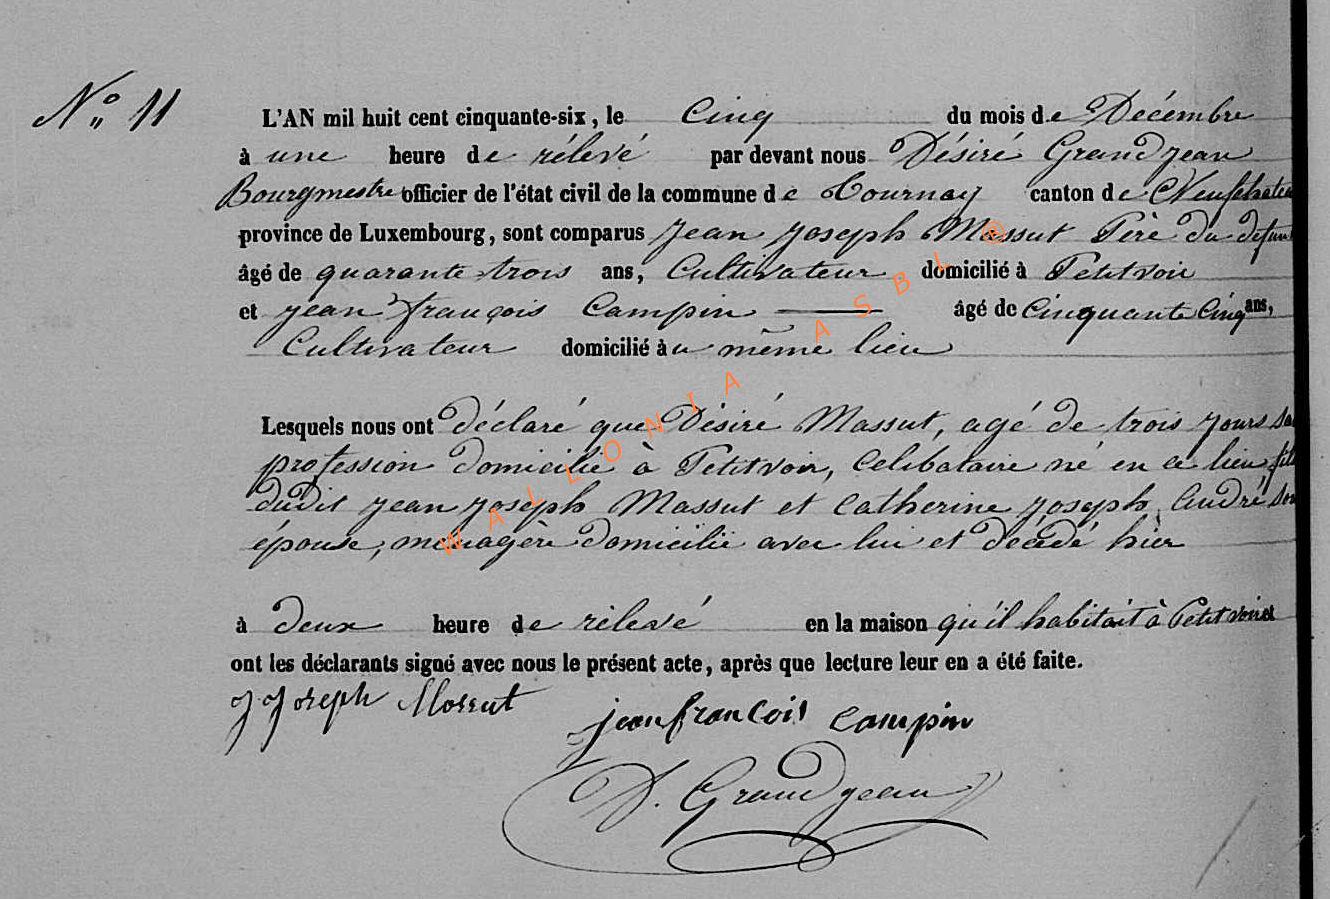 N° 11
L'AN mil huit cent cinquante-six, le Cinq du mois de Décembre
à une heure de rélevé par devant nous Désiré Grandjean
Bourgmestre officier de l'état civil de la commune de Tournay canton de Neufchatea
province de Luxembourg, sont comparus Jean Joseph Massut Père du défun
âgé de quarante trois ans, Cultivateur domicilié à Petitvoir
et jean françois Campin âgé de Cinquante Cinq ans,
Cultivateur domicilié àu même lieu
Lesquels nous ont déclaré que Désiré Massut, agé de trois jours sa
profession domicilié à Petitvoir, Celibataire né en ce lieu fils
dudit Jean Joseph Massut et Catherine Joseph André son
épouse, menagère domicilié avec lui et décédé hier
à deux heure de rélevé en la maison qu'il habitait à Petitvoir et
ont les déclarants signé avec nous le présent acte, après que lecture leur en a été faite.
J Joseph Massut
jean françois Campin
D. Grandjean
WALLONIA ASBL @